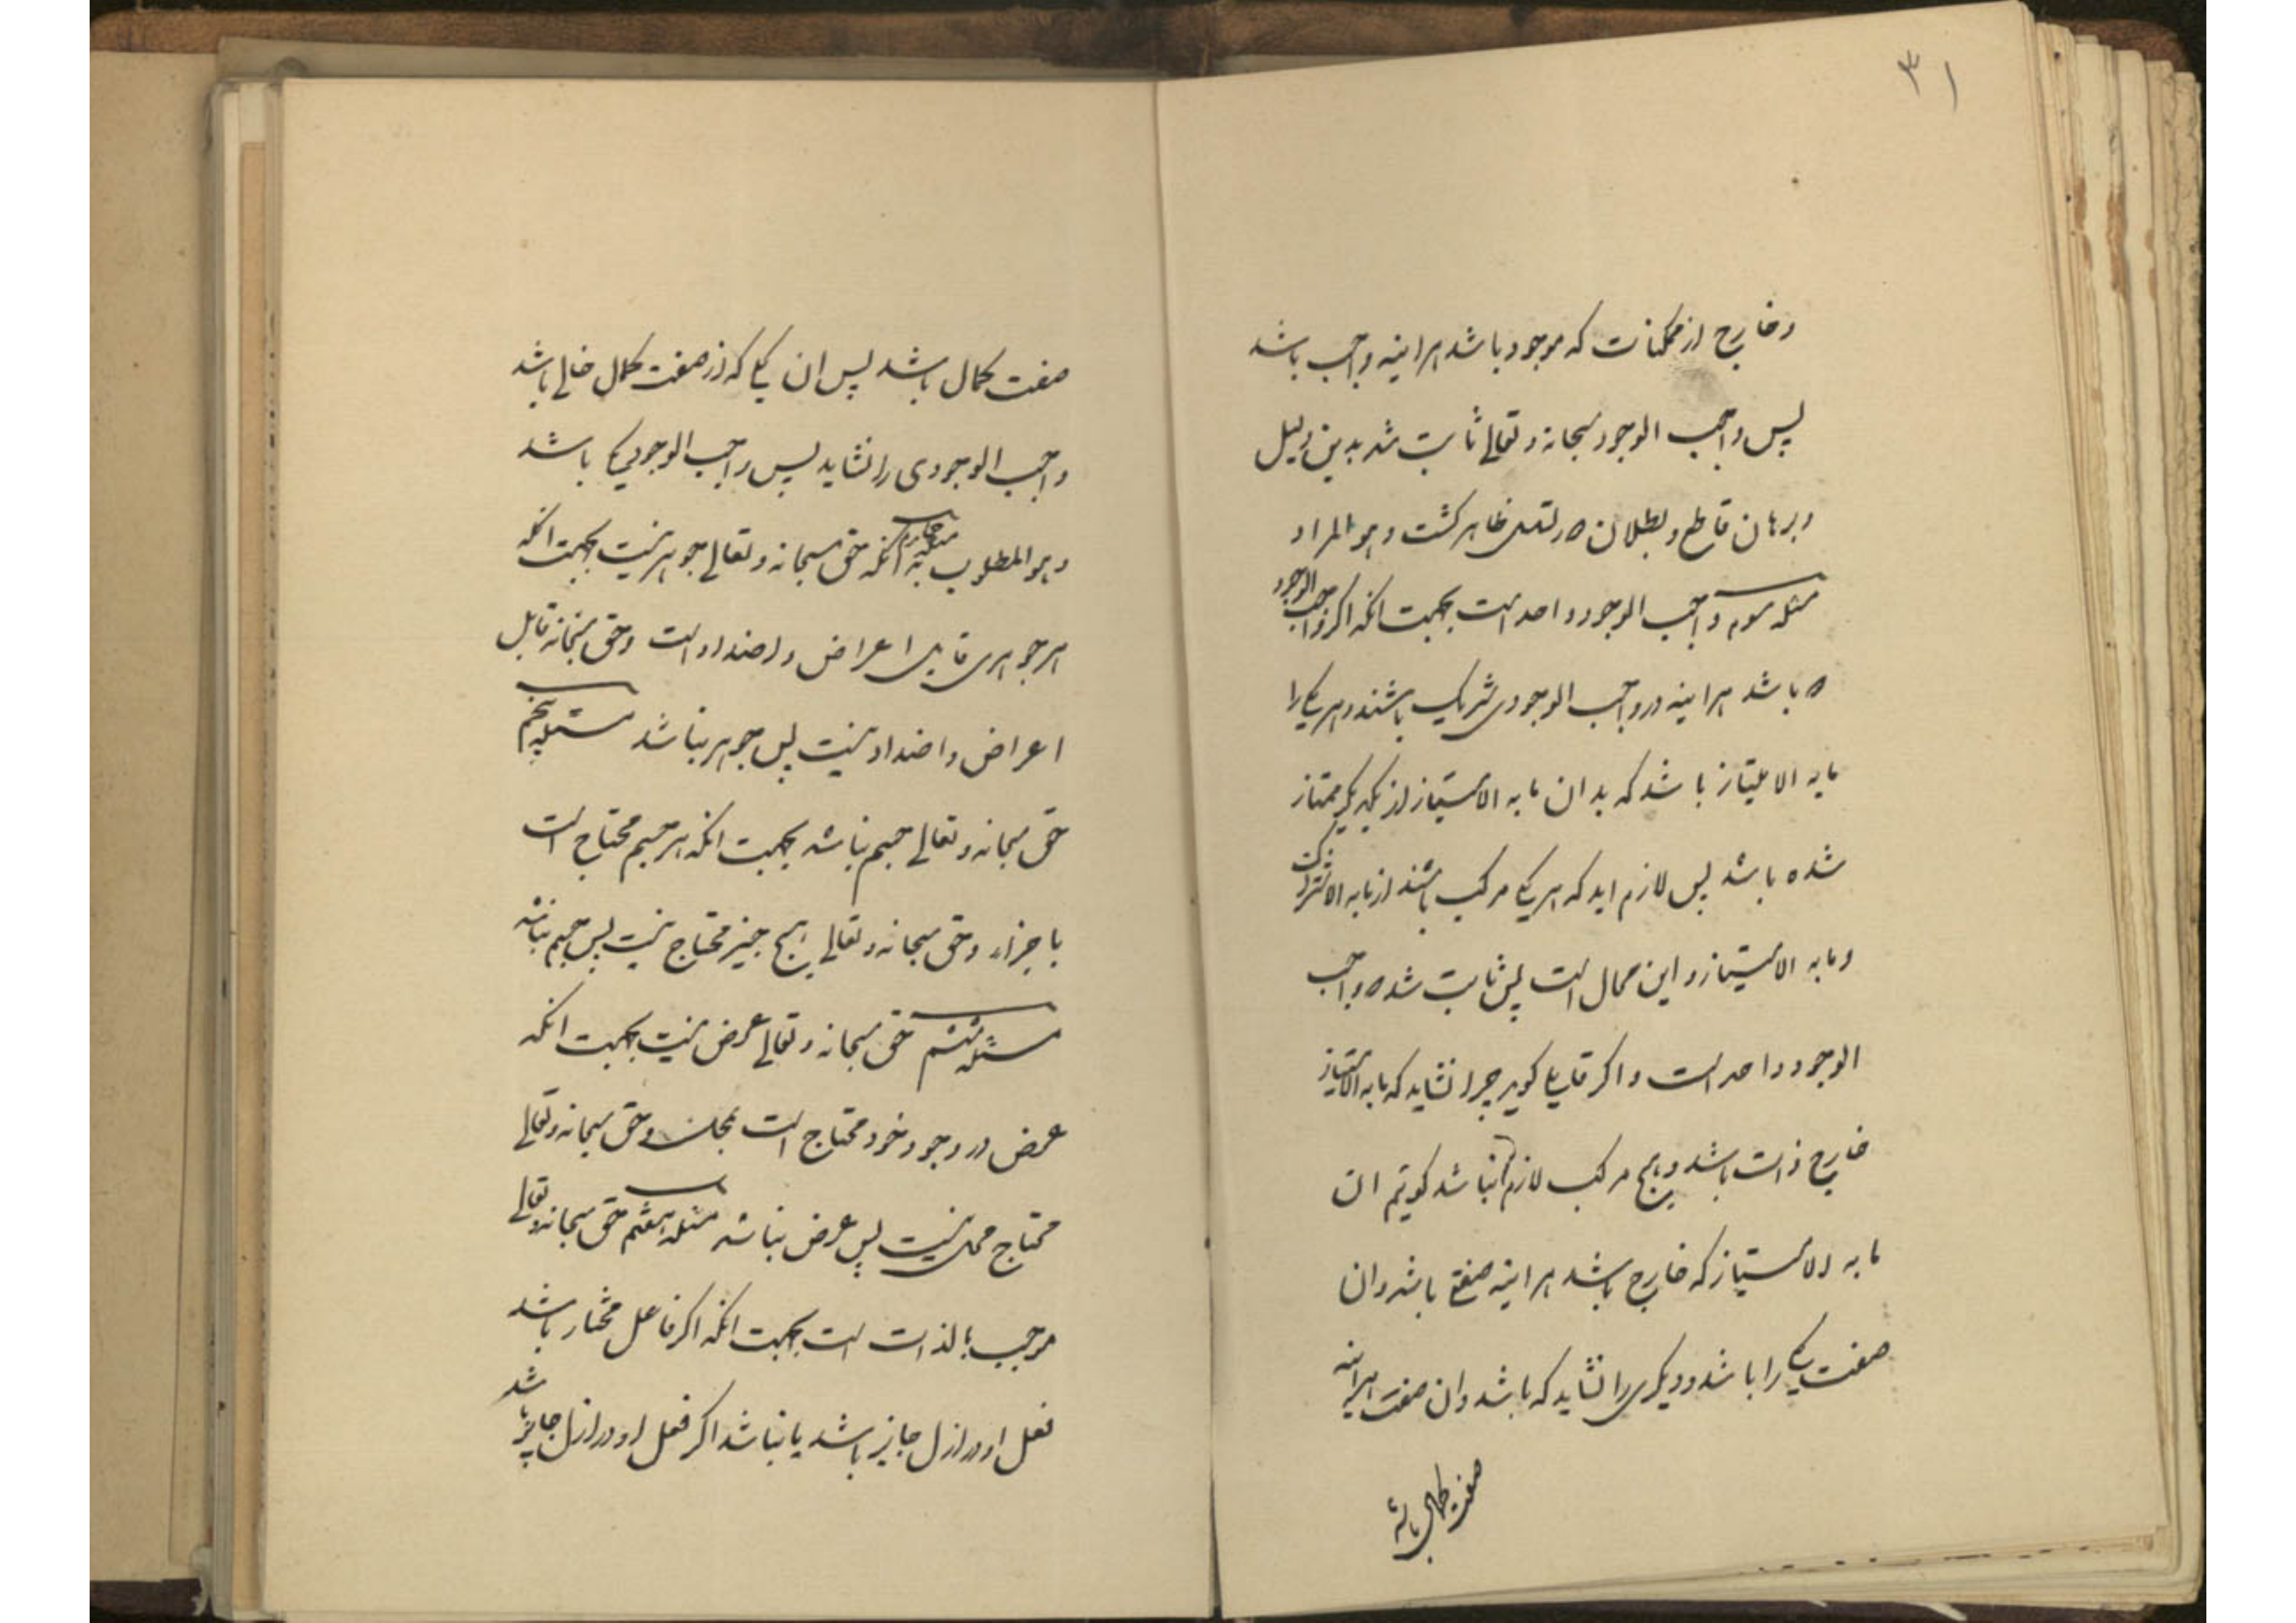 ۳۱
وخارج از ممکنات که موجود باشد هراینه واجب باشد
پس واجب الوجود سبحانه وتعالی ثابت شد بدین دلیل
وبرهان قاطع وبطلان ظاهر کشت وهو المراد
مسئله سوم واجب الوجود واحد است بجهت انکه اکر واجب الوجود
باشد هراینه در واجب الوجودی شریک باشند وهر یکی را
مابه الامتیاز باشد که بدان مابه الامتیاز از یکدیکر ممتاز
شده باشد پس لازم اید که هر یکی مرکب باشند از مابه الاشتراک
ومابه الامتیاز و این محال است پس ثابت شد ه واجب
الوجود واحد است واکر قایلی کوید چرا نشاید که مابه الامتیاز
خارج ذات باشد وهیچ مرکب لازم نباشد کویم ان
مابه الامتیاز که خارج باشد هراینه صفتی باشد وان
صفت یکی را باشد ودیکری را نشاید که باشد وان صفت هراینه
صفت کمال باشد
صفت کمال باشد پس ان یکی که از صفت کمال خالی باشد
واجب الوجودی را نشاید پس واجب الوجود یکی باشد
وهو المطلوب مسئله چهارم انکه حق سبحانه وتعالی جوهر نیست بجهت انکه
هر جوهری قابل اعراض واضداد است وحق سبحانه قابل
اعراض واضداد نیست پس جوهر نباشد مسئله پنجم
حق سبحانه وتعالی جسم نباشد بجهت انکه هر جسم محتاج است
باجزاء وحق سبحانه وتعالی بهیچ چیز محتاج نیست پس جسم نباشد
مسئله ششم حق سبحانه وتعالی عرض نیست بجهت انکه
عرض در وجود خود محتاج است بمحل وحق سبحانه وتعالی
محتاج محل نیست پس عرض نباشد مسئله هفتم حق سبحانه وتعالی
موجب بالذات است بجهت انکه اکر فاعل مختار باشد
فعل او در ازل جایز باشد یا نباشد اکر فعل او در ازل جایز باشد